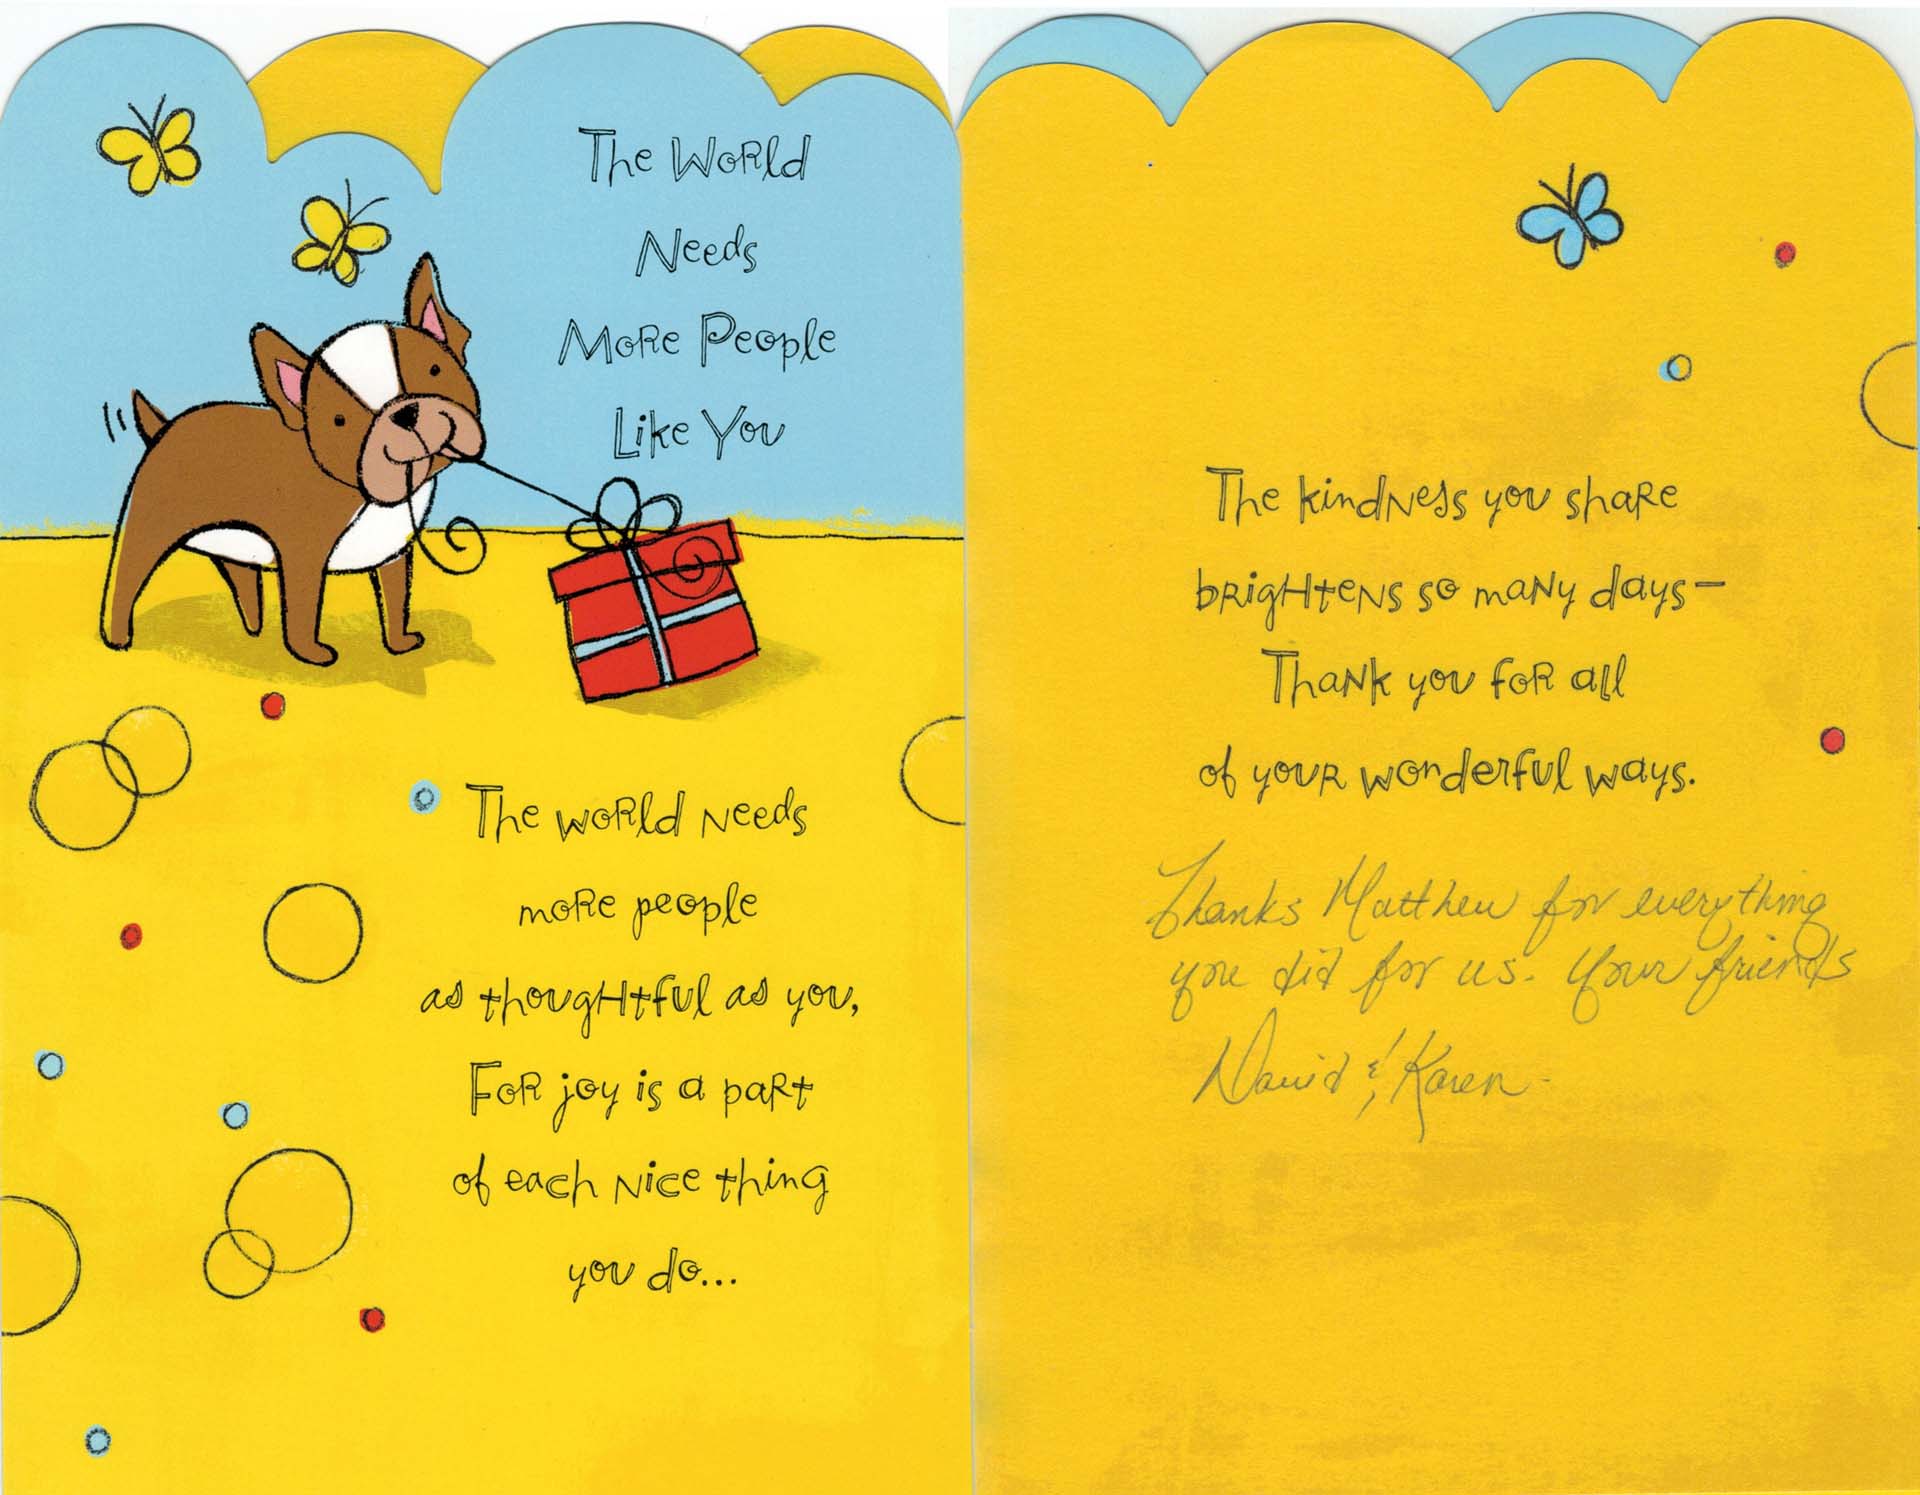 The World
Needs
More People
Like You
The world needs
more people
as thoughtful as you,
For joy is a part
of each nice thing
you do...
The kindness you share
brightens so many days—
Thank you for all
of your wonderful ways.
Thanks Matthew for everything
you did for us. Your friends
David & Karen